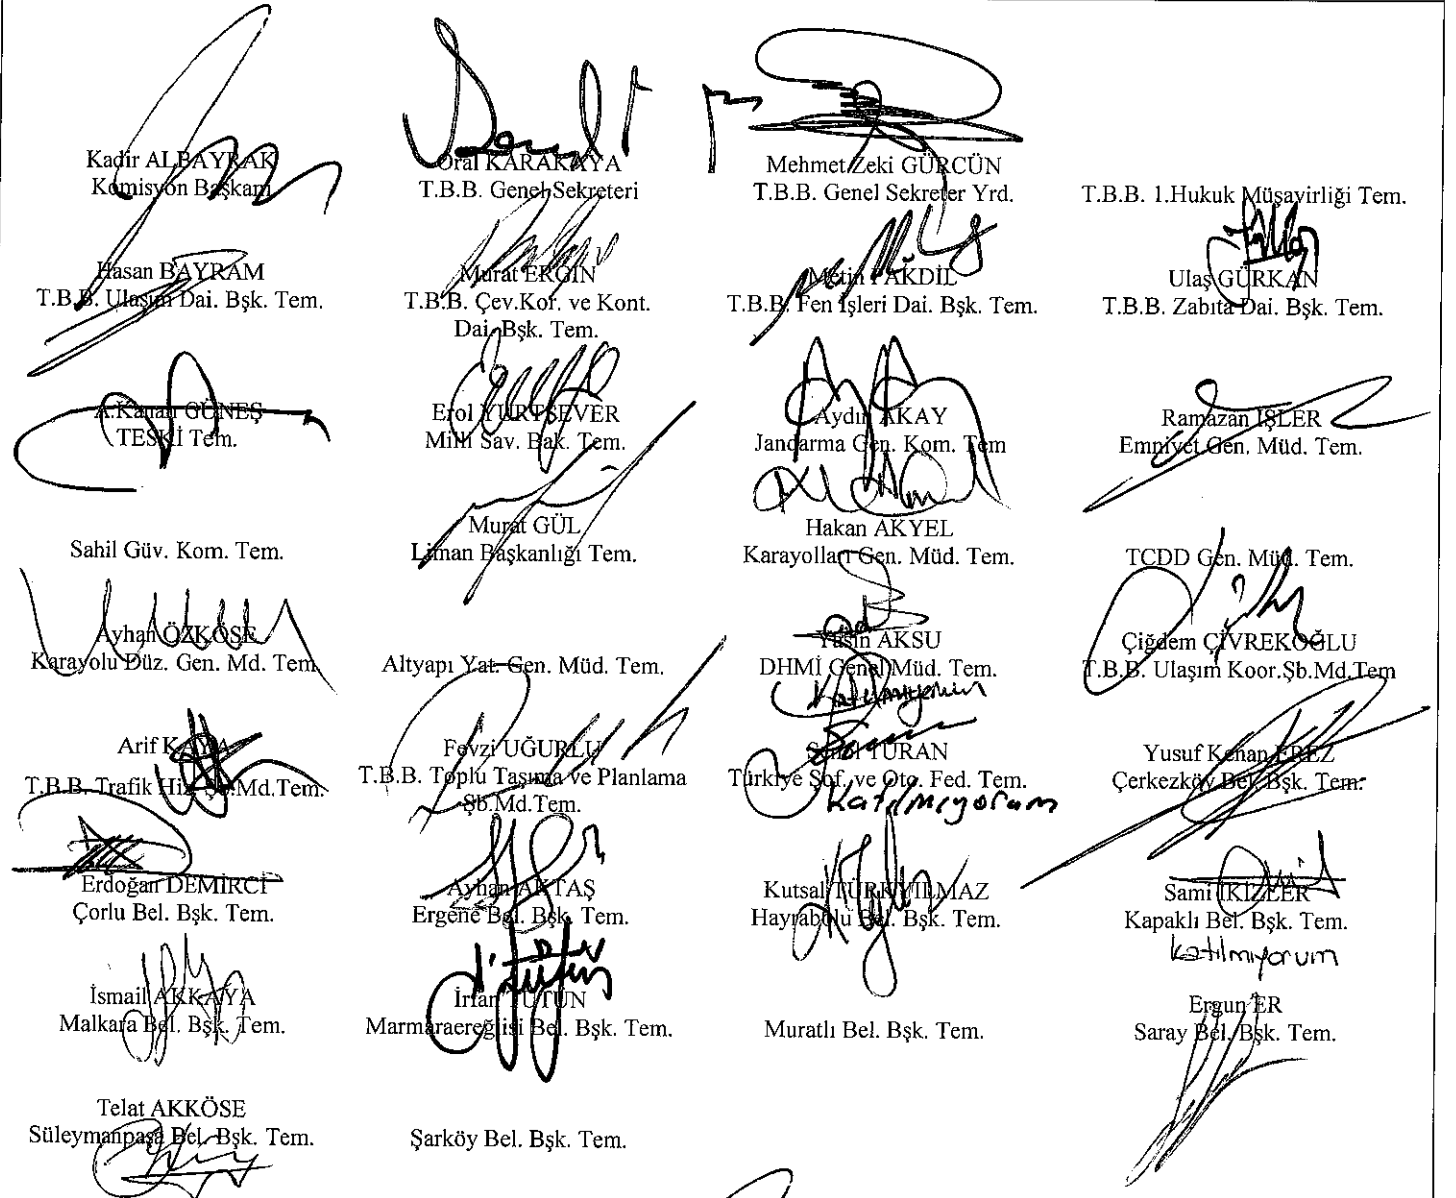 Kadir ALBAYRAK
Komisyon Başkanı
Oral KARAKAYA
T.B.B. Genel Sekreteri
Mehmet Zeki GÜRCÜN
T.B.B. Genel Sekreter Yrd.
T.B.B. 1.Hukuk Müşavirliği Tem.
Hasan BAYRAM
T.B.B. Ulaşım Dai. Bşk. Tem.
Murat ERGİN
T.B.B. Çev.Kor. ve Kont.
Dai. Bşk. Tem.
Metin PAKDİL
T.B.B. Fen İşleri Dai. Bşk. Tem.
Ulaş GÜRKAN
T.B.B. Zabıta Dai. Bşk. Tem.
GÜNEŞ
TESKİ Tem.
Erol YURTSEVER
Milli Sav. Bak. Tem.
Aydın AKAY
Jandarma Gen. Kom. Tem
Ramazan İŞLER
Emniyet Gen. Müd. Tem.
Sahil Güv. Kom. Tem.
Murat GÜL
Liman Başkanlığı Tem.
Hakan AKYEL
Karayolları Gen. Müd. Tem.
TCDD Gen. Müd. Tem.
Ayhan ÖZKÖSE
Karayolu Düz. Gen. Md. Tem.
Altyapı Yat. Gen. Müd. Tem.
Yasin AKSU
DHMİ Genel Müd. Tem.
Katılmıyorum
Çiğdem ÇİVREKOĞLU
T.B.B. Ulaşım Koor.Şb.Md.Tem
Arif KAYA
T.B.B. Trafik Hiz. Şb.Md.Tem.
Fevzi UĞURLU
T.B.B. Toplu Taşıma ve Planlama
Şb.Md.Tem.
TURAN
Türkiye Şof. ve Oto. Fed. Tem.
Katılmıyorum
Yusuf Kenan EREZ
Çerkezköy Bel. Bşk. Tem.
Erdoğan DEMİRCİ
Çorlu Bel. Bşk. Tem.
Ayhan AKTAŞ
Ergene Bel. Bşk. Tem.
Kutsal TÜRKYILMAZ
Hayrabolu Bel. Bşk. Tem.
Sami İKİZLER
Kapaklı Bel. Bşk. Tem.
katılmıyorum
İsmail AKKAYA
Malkara Bel. Bşk. Tem.
İrfan TÜTÜN
Marmaraereğlisi Bel. Bşk. Tem.
Muratlı Bel. Bşk. Tem.
Ergun ER
Saray Bel. Bşk. Tem.
Telat AKKÖSE
Süleymanpaşa Bel. Bşk. Tem.
Şarköy Bel. Bşk. Tem.